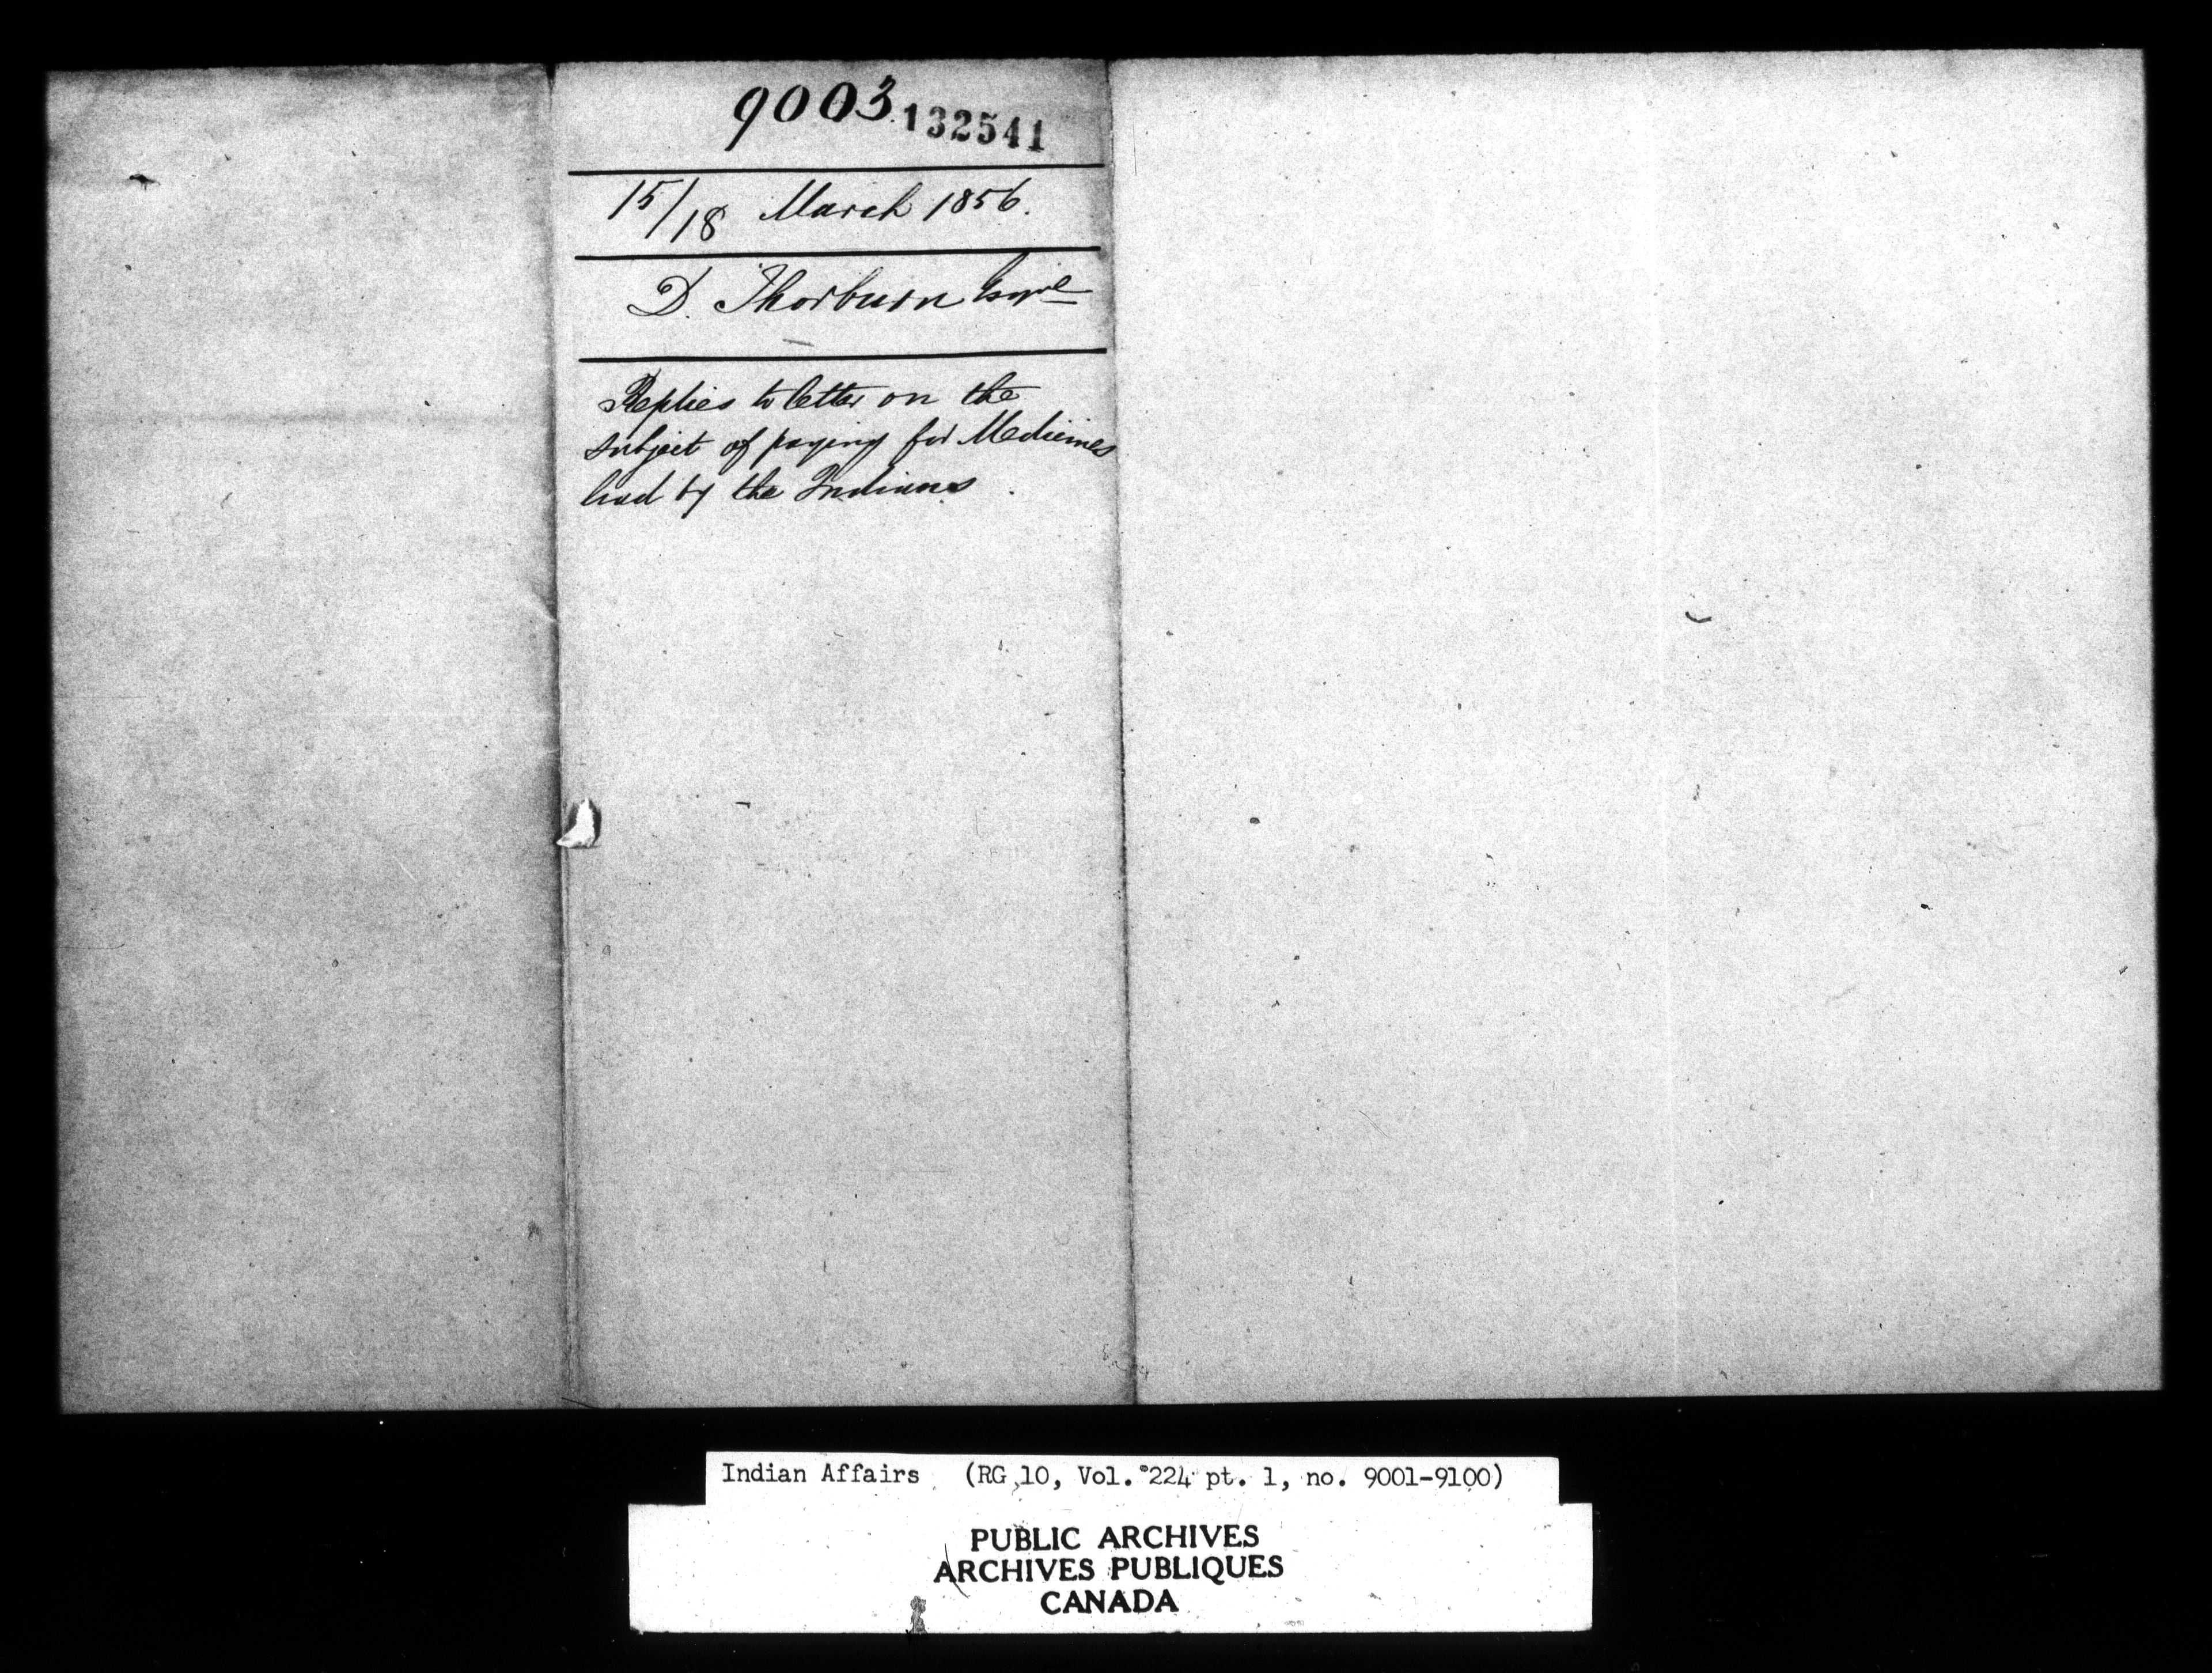 9003 132541
15/18 March 1856.
D. Thorburn Esqre
Replies to letter on the
subject of paying for Medicines
had by the Indians.
Indian Affairs (RG 10, Vol. 224 pt. 1, no. 9001-9100)
PUBLIC ARCHIVES
ARCHIVES PUBLIQUES
CANADA